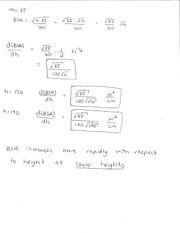 m=85
BSA = √(h·85)/60 = √85·√h/60 = √85/60 √h
d(BSA)/dh = √85/60 · 1/2 h^(-1/2)
= √85/(120√h)
h=170 d(BSA)/dh = √85/(120√170) m²/cm
h=190 d(BSA)/dh = √85/(120√190) m²/cm
BSA increases more rapidly with respect
to height at lower heights